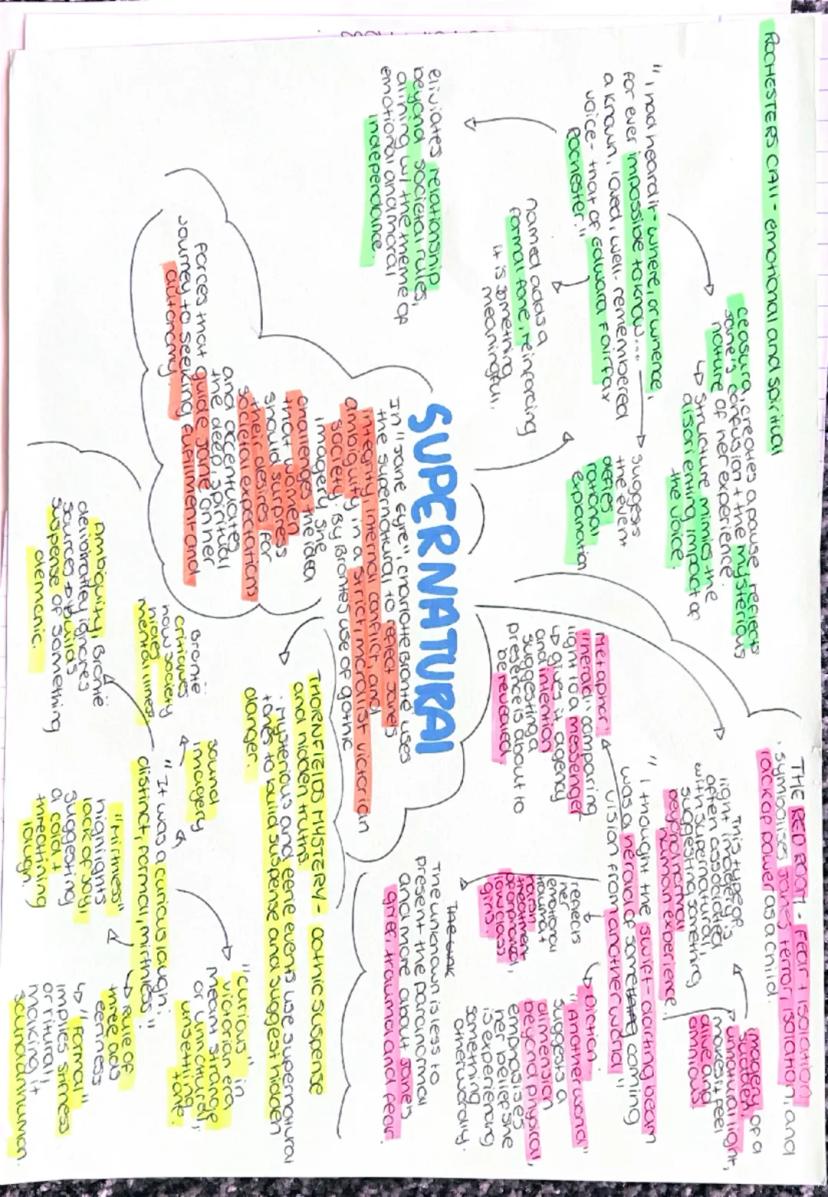 SUPERNATURAL
In "Jane Eyre", Charlotte Bronte uses
the supernatural to reflect Janes
integrity, internal conflict, and
ambiguity in a strict, moralist victorian
society. By Brontes use of gothic
imagery, she
challenges the idea
that women
should surpress
their desires for
societal expectations
and accentuates
the deep, spiritual
forces that guide Jane on her
journey to seeking fulfillment and
autonomy
ROCHESTERS CALL - emotional and spiritual
"I had heard it - where, or whence,
for ever impossible to know...
a known, loved, well-remembered
voice - that of Edward Fairfax
Rochester."
ceasura, creates a pause, reflects
Jane's confusion + the mysterious
nature of her experience.
↳ structure mimics the
disorienting impact of
the voice.
suggests
the event
defies
rational
explanation
named adds a
formal tone, reinforcing
it is something
meaningful.
eliviates relationship
beyond societal rules,
alining w/ the theme of
emotional and moral
independance.
THE RED ROOM - fear + isolation
• symbolises Janes terror, isolation, and
lack of power as a child.
imagery of a
sudden,
unnatural light,
makes it feel
alive and
ominous
This type of
light is
often associated
with supernatural,
suggesting something
beyond normal
human experience.
"I thought the swift-darting beam
was a herald of some coming
vision from another world"
Metaphor:
"herald" comparing
light to a messenger
↳ gives it agency
and intention
suggesting a
presence is about to
be revealed
reflects
her
emotional
trauma +
harsh
treatment
of orphaned,
low class
girls.
Diction:
"Another world"
suggests a
dimension
beyond physical,
emphasises
her belief she
is experiencing
something
otherworldly.
The unknown is less to
present the paranormal
and more about Janes
grief, trauma and fear.
THORNFIELDS MYSTERY - gothic suspense
and hidden truths.
Mysterious and eerie events use supernatural
tones to build suspense and suggest hidden
danger.
"It was a curious laugh;
distinct, formal, mirthless."
sound
imagery
Bronte
critiques
how society
hides
mental illness
Ambiguity, Bronte
deliberatley ignores
sources to build
suspense of something
demonic.
"Mirthless"
highlights
lack of joy,
suggesting
a cold +
threatining
laugh.
"curious" in
victorian era
meant strange
or unnatural,
unsettling
tone.
rule of
three adds
eeriness
↳ "formal"
implies stiffness
or ritural,
making it
sound inhuman.